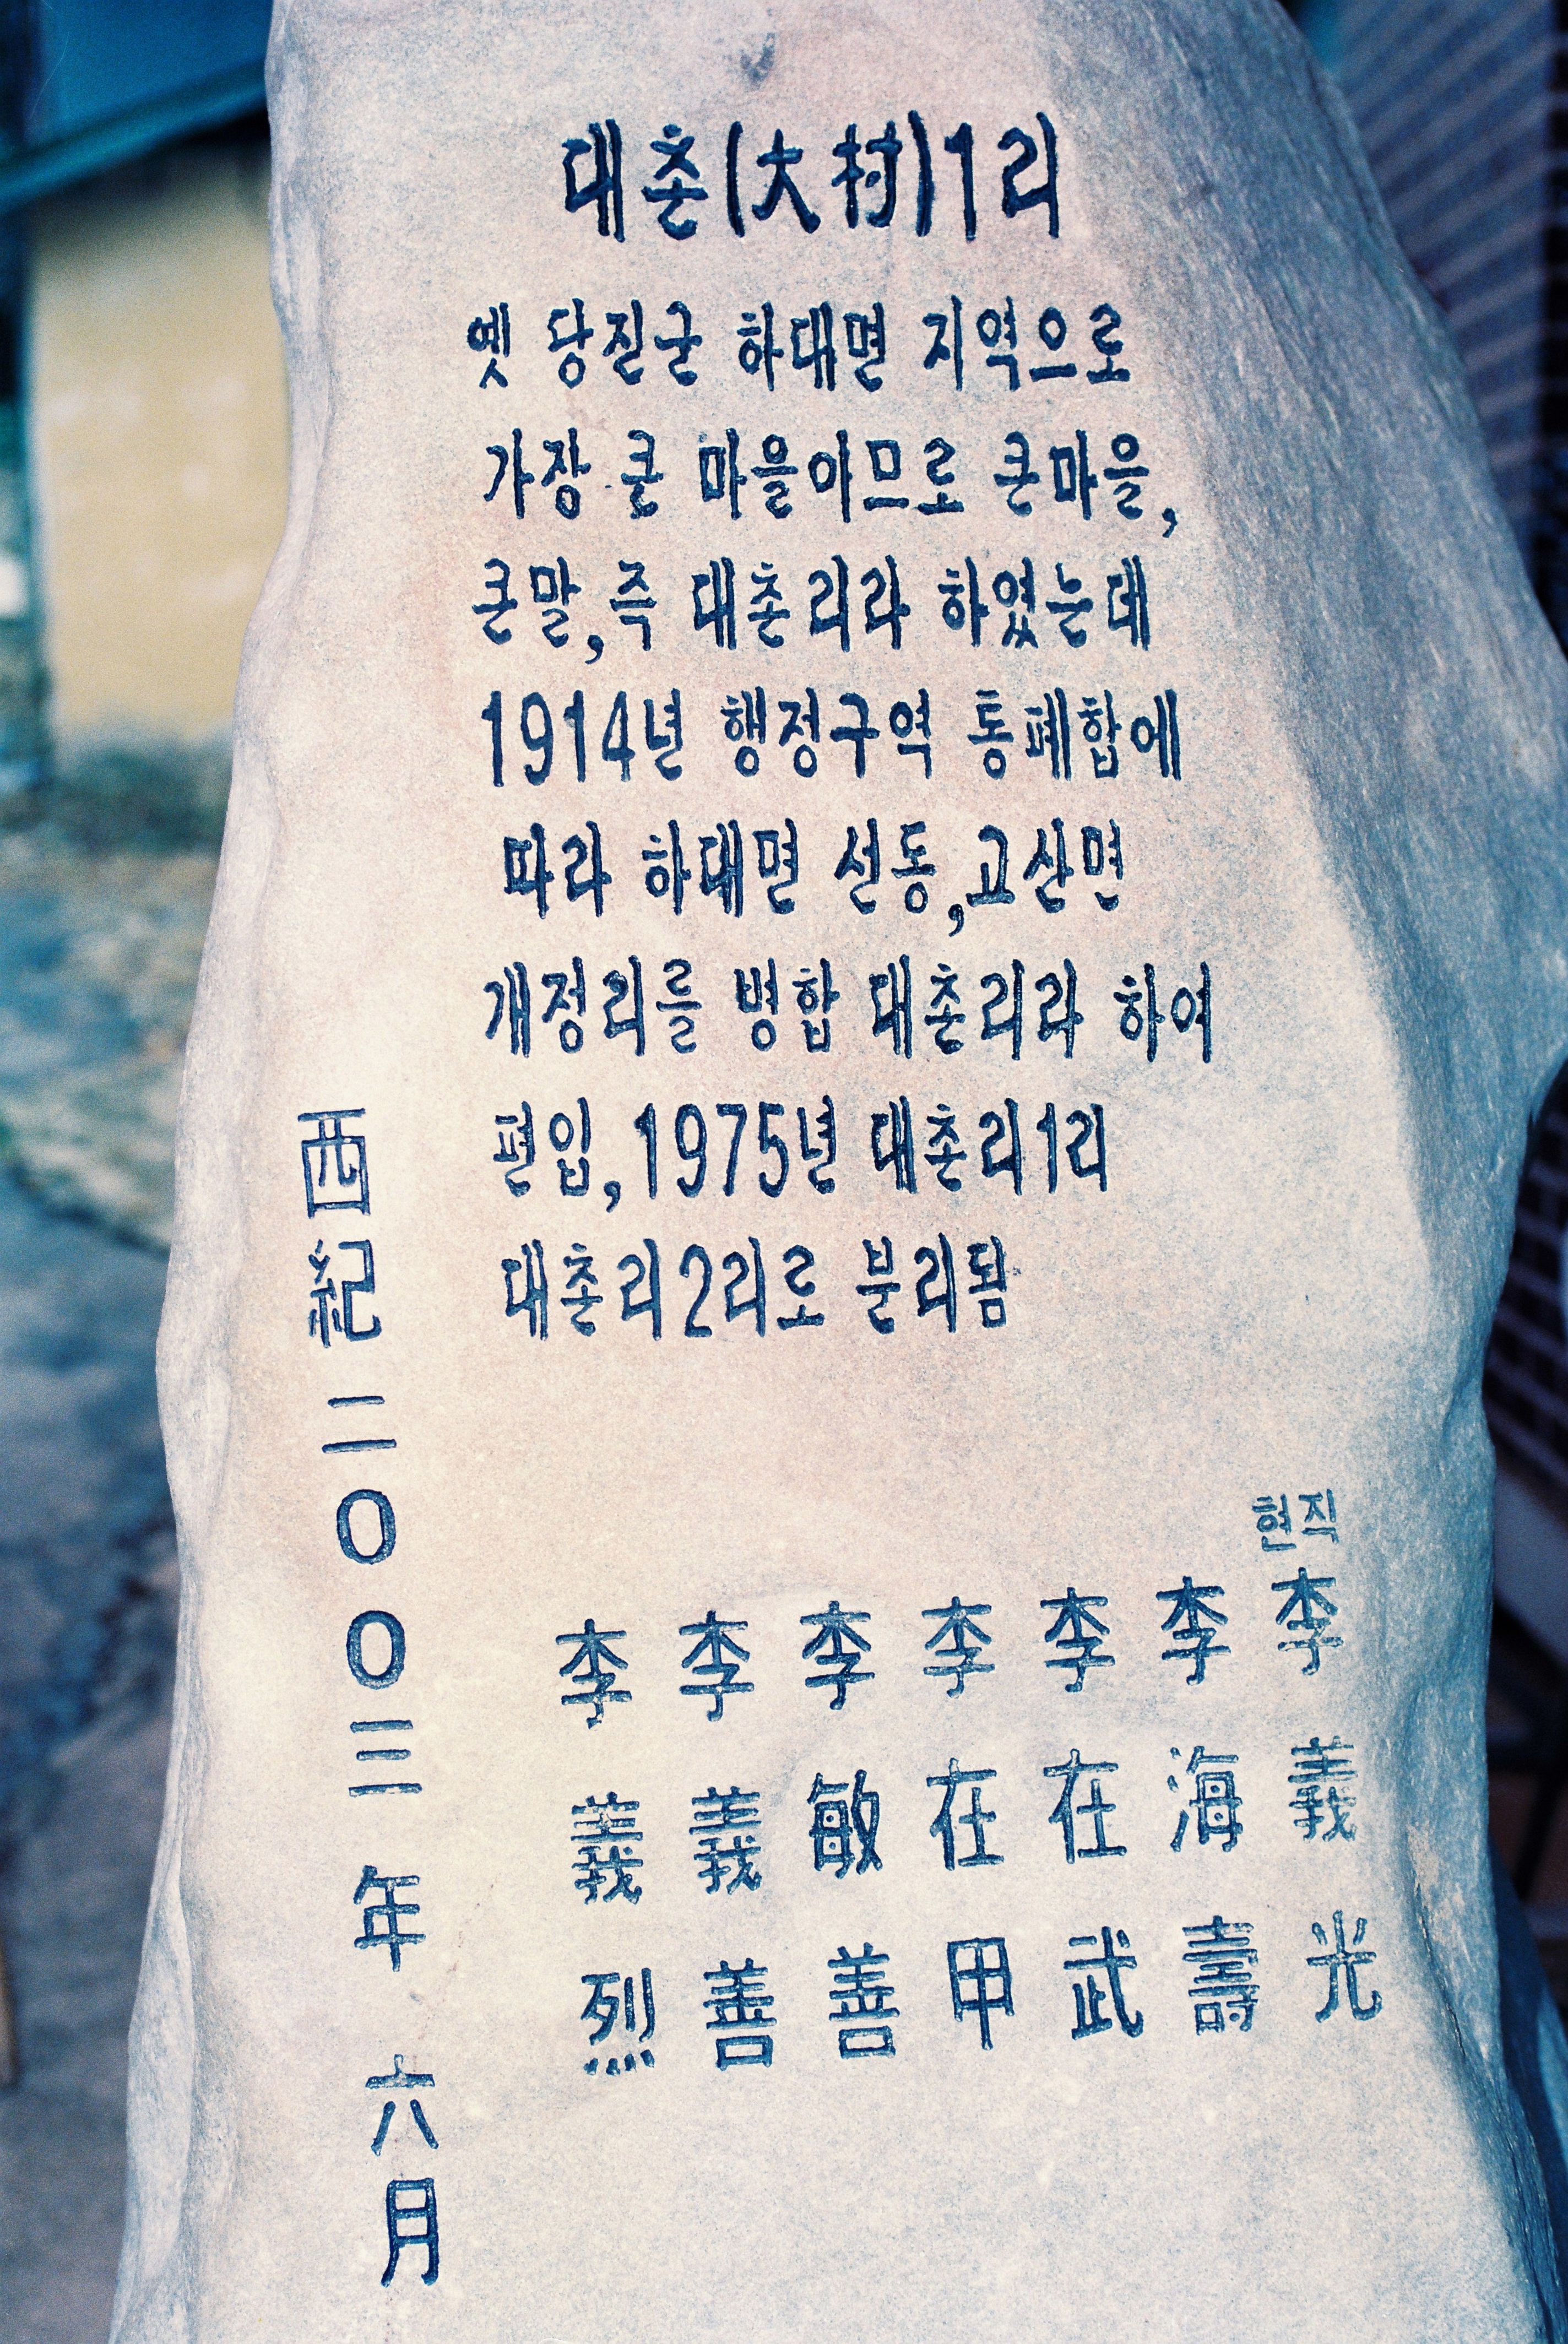 대촌(大村)1리
옛 당진군 하대면 지역으로
가장 큰 마을이므로 큰마을,
큰말,즉 대촌리라 하였는데
1914년 행정구역 통폐합에
따라 하대면 선동,고산면
개정리를 병합 대촌리라 하여
편입,1975년 대촌리1리
대촌리2리로 분리됨
현직
李義光
李海壽
李在武
李在甲
李敏善
李義善
李義烈
西紀二〇〇三年六月